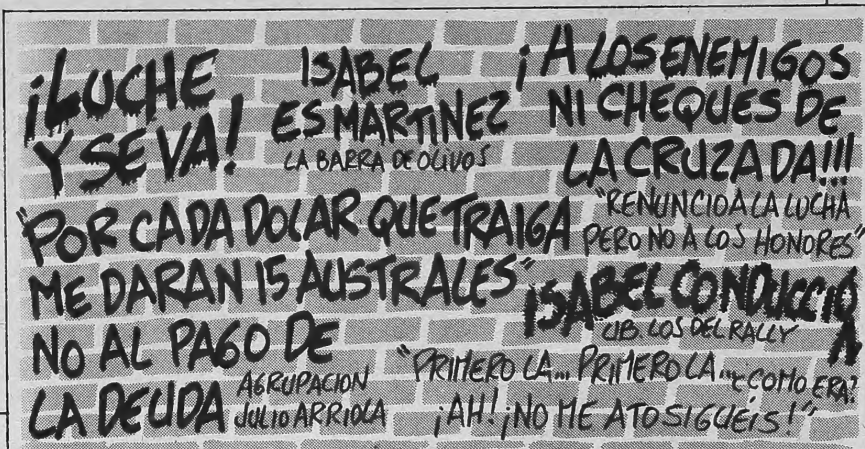 ¡LUCHE
Y SE VA!
ISABEL
ES MARTINEZ
LA BARRA DE OLIVOS
¡A LOS ENEMIGOS
NI CHEQUES DE
LA CRUZADA!!!
"POR CADA DOLAR QUE TRAIGA
ME DARAN 15 AUSTRALES"
"RENUNCIO A LA LUCHA
PERO NO A LOS HONORES"
ISABEL CONDUCCIO
N
LIB. LOS DEL RALLY
NO AL PAGO DE
LA DEUDA
AGRUPACION
JULIO ARRIOLA
"PRIMERO LA... PRIMERO LA... ¿COMO ERA?
¡AH! ¡NO ME ATOSIGUÉIS!"